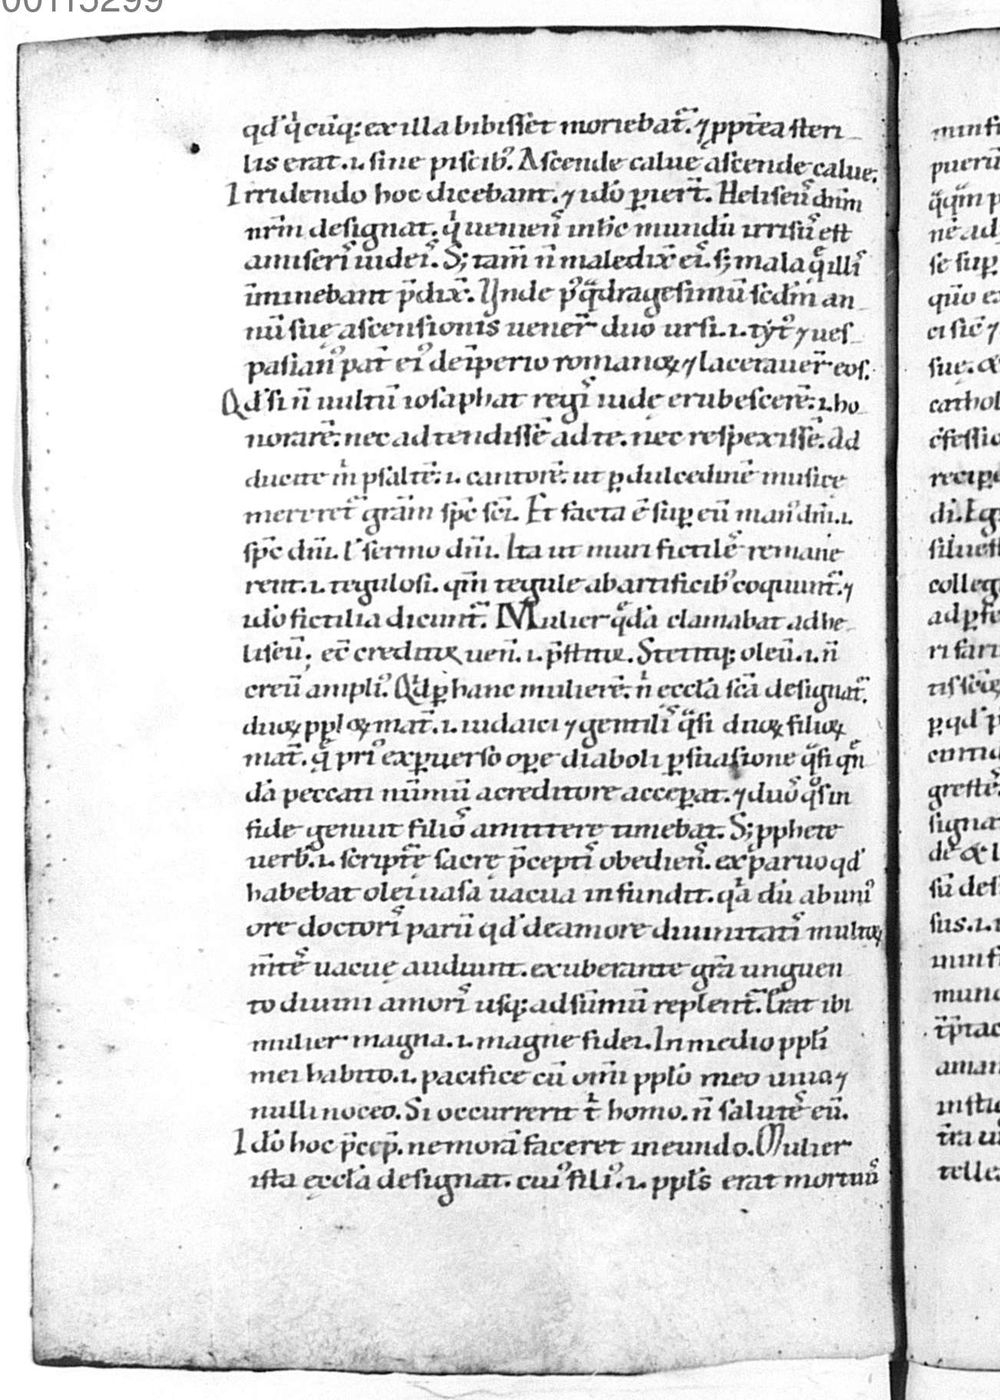 00115299
qd' q̇ cūq; ex illa bibisset moriebat᷑. ⁊ ppt̄ea steri
lis erat .i. sine piscib᷒. Ascende calue ascende calue.
Irridendo hoc dicebant. ⁊ idō ꝑier̄t. Heliseu᷒ dn̄m
nr̄m designat. q̇ ueniens in hc̄ mundū irrisus est
a miseris iudeis. S; tam̄ n̄ maledix̄ eis. s; mala q̄ illis
īminebant p̄dix̄. Vnde p᷒ q̄dragesimū scd̄m an
nū suę ascensionis uener̄ duo ursi .i. tyt᷒ ⁊ ues
pasian᷒ pat̄ ei᷒ de īperio romanoꝝ ⁊ lacerauer̄ eos.
Qd' si n̄ uultū iosaphat regis iudę erubescerē. i. ho
norarē. nec adtendissē ad te. nec respexissē. Ad
ducite m̄ psaltē. i. cantorē. ut ꝑ dulcedinē musice
mereret᷑ gr̄am sp̄c sc̄i. Et facta ē suꝑ eū man᷒ dn̄i .i.
sp̄c dn̄i. l' sermo dn̄i. Ita ut muri fictiles remane
rent .i. tegulosi. qm̄ tegule ab artificib᷒ coquunt᷑. ⁊
idō fictilia dicunt᷑. Mulier q̄dā clamabat ad he
liseū; ec̄ creditoꝝ uen̄. i. p̄stitoꝝ. Stetitq; oleū .i. n̄
creu᷒ ampli᷒. Qd' ꝑ hanc mulierē. n̄ eccl̄a sc̄a designat᷑.
duoꝝ ppl̄oꝝ mat̄ .i. iudaici ⁊ gentilis q̄si duoꝝ filioꝝ
mat̄. q̄ pri᷒ ex ꝑuerso oꝑe diaboli ꝑsuasione q̄si qn̄
dā peccati nūmū a creditore acceꝑat. ⁊ duos q̄s in
fide genuit filios amittere timebat. S; pphete
uerb᷒ .i. scripturę sacrę p̄ceptis obediens. ex paruo qd'
habebat olei uasa uacua infundit. q̄a dū ab uni᷒
ore doctoris parū qd' de amore diuinitatis multoꝝ
m̄tes uacuę audiunt. exuberante gr̄a unguen
to diuini amoris usq; ad sūmū replent᷑. Erat ibi
mulier magna .i. magne fidei. In medio ppl̄i
mei habito .i. pacifice cū om̄i ppl̄o meo uiua ⁊
nulli noceo. Si occurrerit t̄ homo. n̄ salutes eū.
Idō hoc p̄cep̄. ne morā faceret in eundo. Mulier
ista ęccl̄a designat. cui᷒ fili᷒ .i. ppl̄s erat mortuus